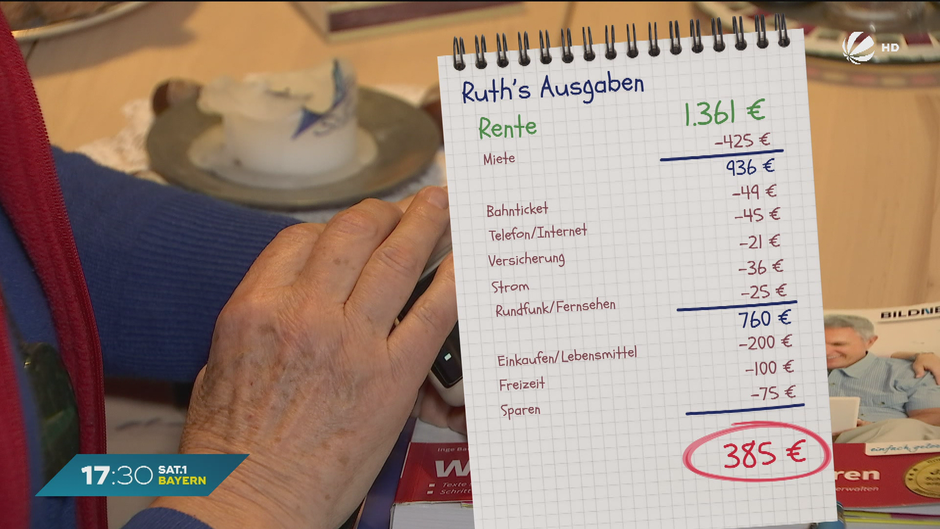 HD
Ruth's Ausgaben
Rente 1.361 €
Miete -425 €
936 €
Bahnticket -49 €
Telefon/Internet -45 €
Versicherung -21 €
Strom -36 €
Rundfunk/Fernsehen -25 €
760 €
Einkaufen/Lebensmittel -200 €
Freizeit -100 €
Sparen -75 €
385 €
BILDNE
einfach
17:30 SAT.1
BAYERN